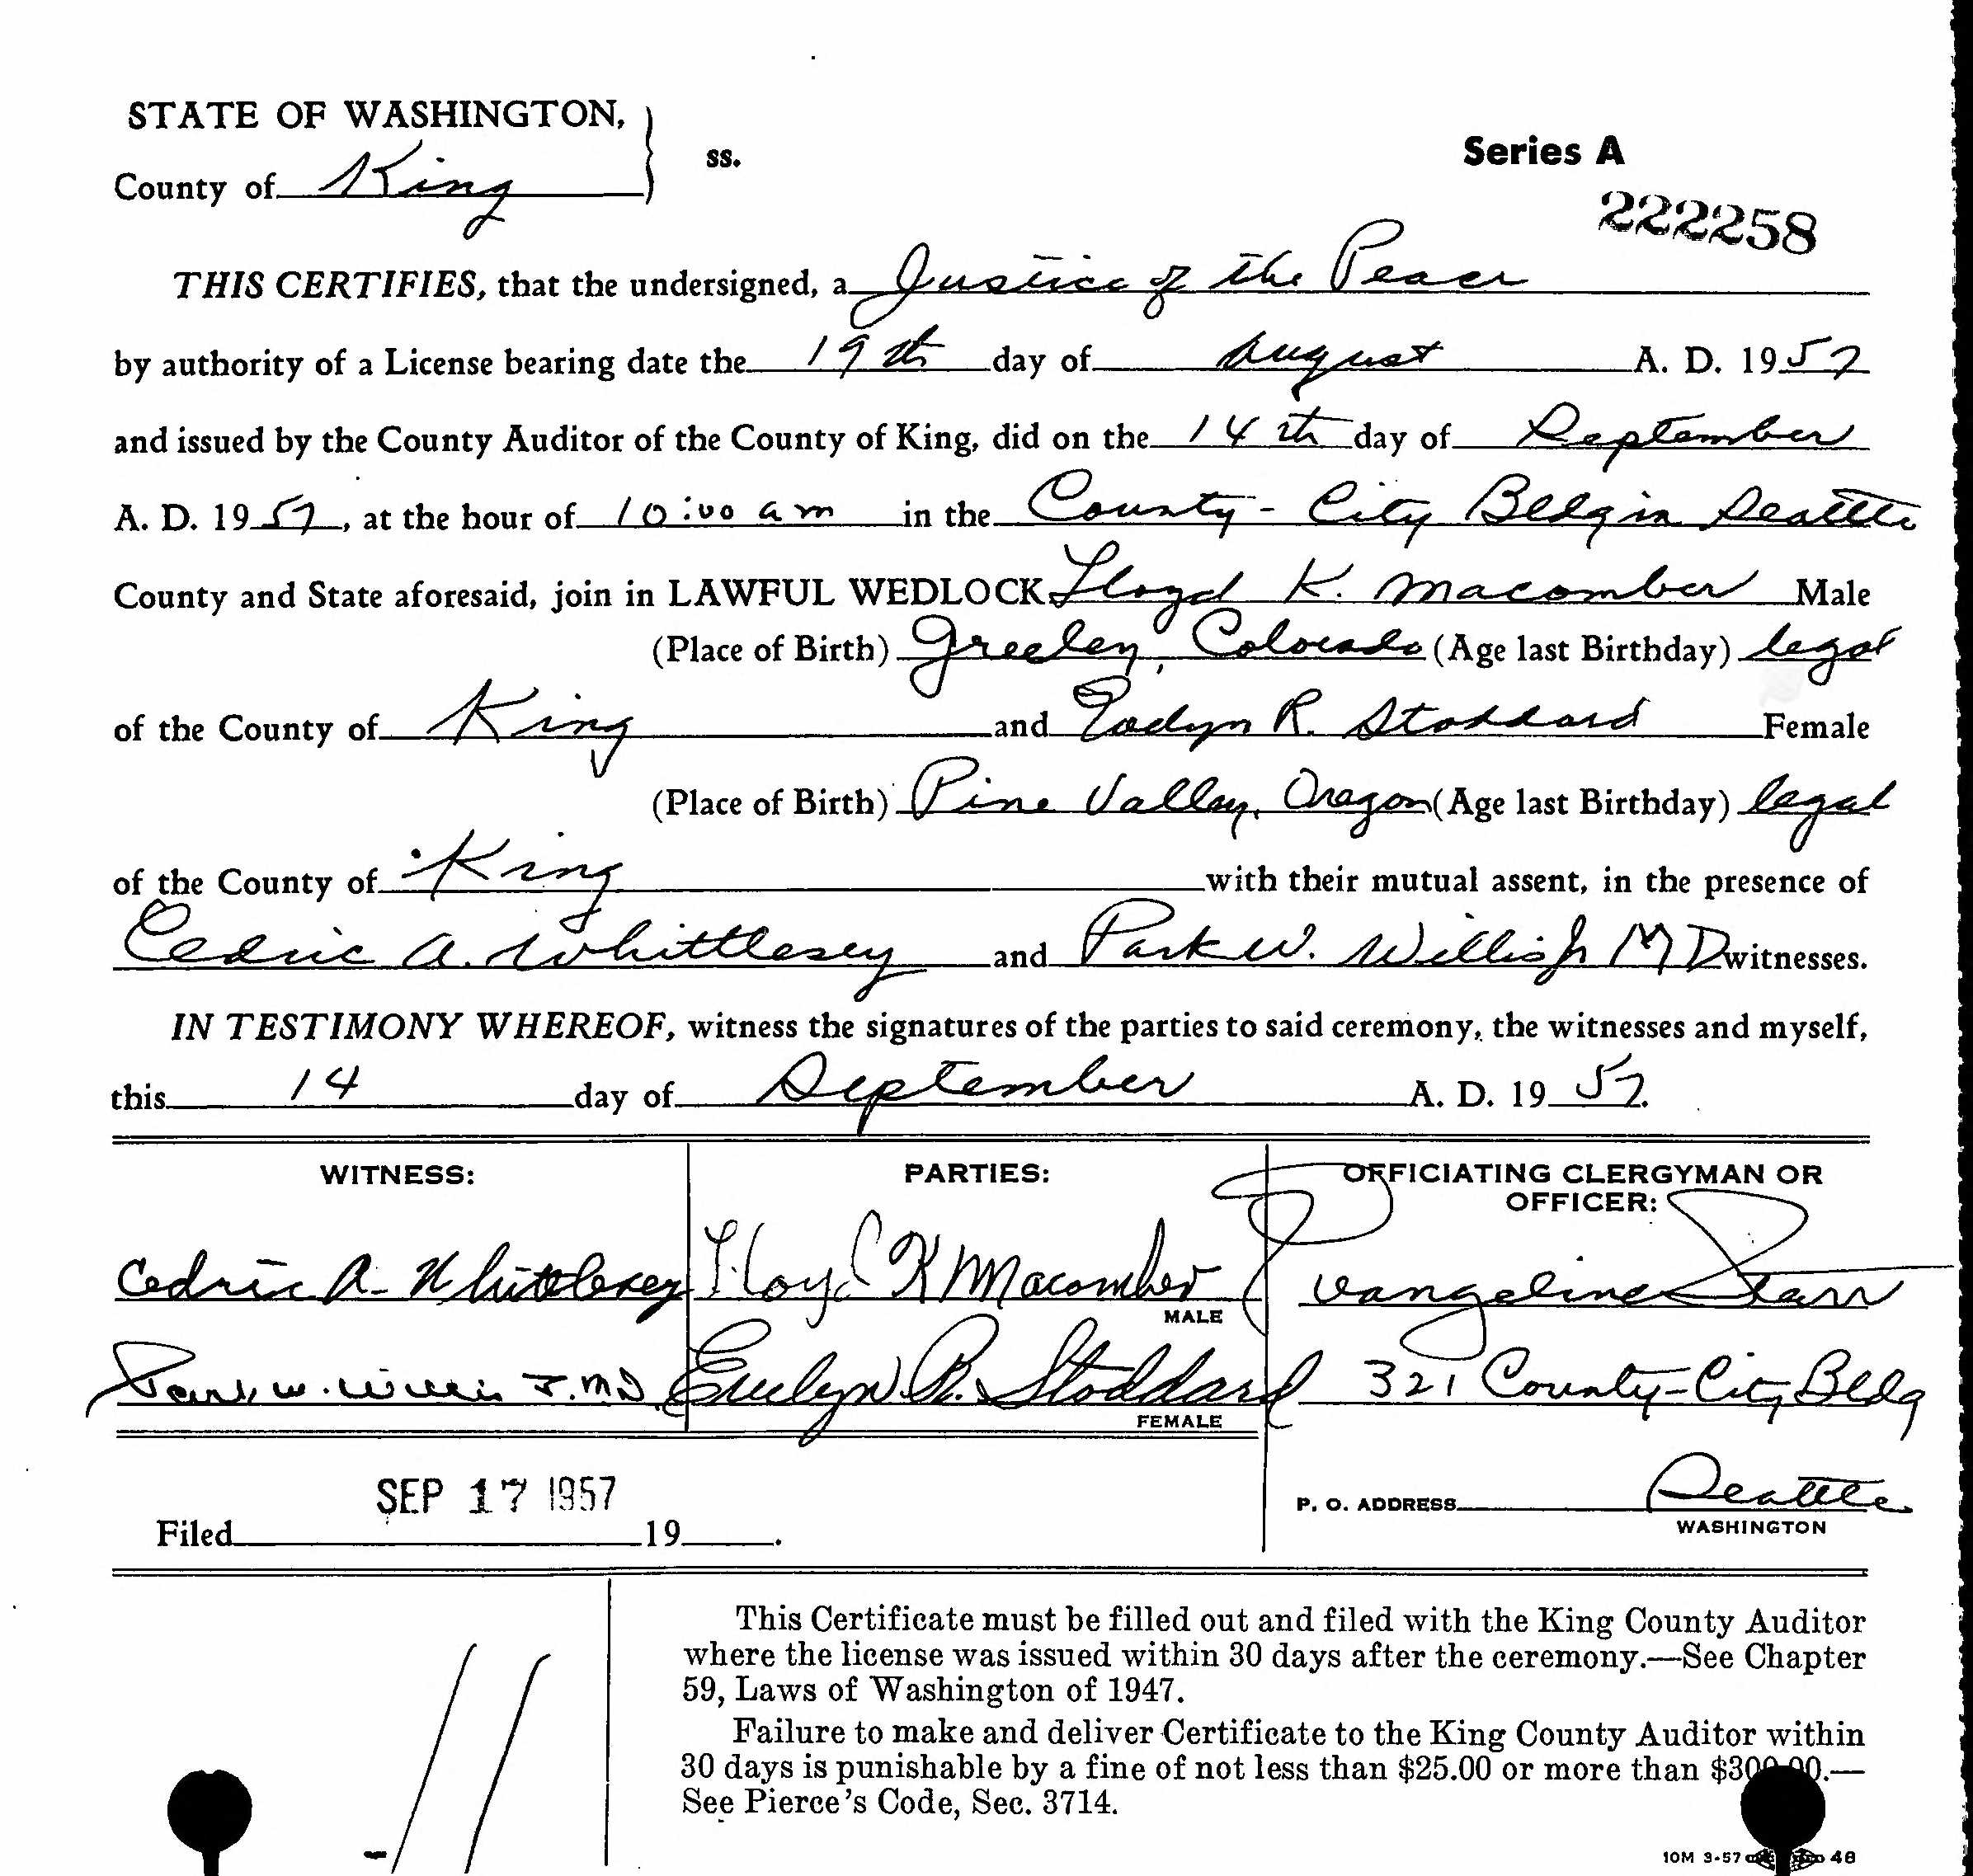 STATE OF WASHINGTON,
County of King ss.
Series A
222258
THIS CERTIFIES, that the undersigned, a Justice of the Peace
by authority of a License bearing date the 19th day of August A. D. 1957
and issued by the County Auditor of the County of King, did on the 14th day of September
A. D. 1957, at the hour of 10:00 am in the County-City Bldg in Seattle
County and State aforesaid, join in LAWFUL WEDLOCK Lloyd K. Macomber Male
(Place of Birth) Greeley, Colorado (Age last Birthday) legal
of the County of King and Evelyn R. Stoddard Female
(Place of Birth) Pine Valley, Oregon (Age last Birthday) legal
of the County of King with their mutual assent, in the presence of
Cedric A. Whittlesey and Park W. Willis Jr MD witnesses.
IN TESTIMONY WHEREOF, witness the signatures of the parties to said ceremony, the witnesses and myself,
this 14 day of September A. D. 1957.
WITNESS: PARTIES: OFFICIATING CLERGYMAN OR
OFFICER:
Cedric A. Whittlesey Lloyd K Macomber Evangeline Starr
MALE
Park W. Willis Jr. MD. Evelyn R. Stoddard 321 County-City Bldg
FEMALE
SEP 17 1957
P. O. ADDRESS Seattle
WASHINGTON
Filed 19 .
This Certificate must be filled out and filed with the King County Auditor
where the license was issued within 30 days after the ceremony.—See Chapter
59, Laws of Washington of 1947.
Failure to make and deliver Certificate to the King County Auditor within
30 days is punishable by a fine of not less than $25.00 or more than $300.00.—
See Pierce's Code, Sec. 3714.
10M 3-57 48